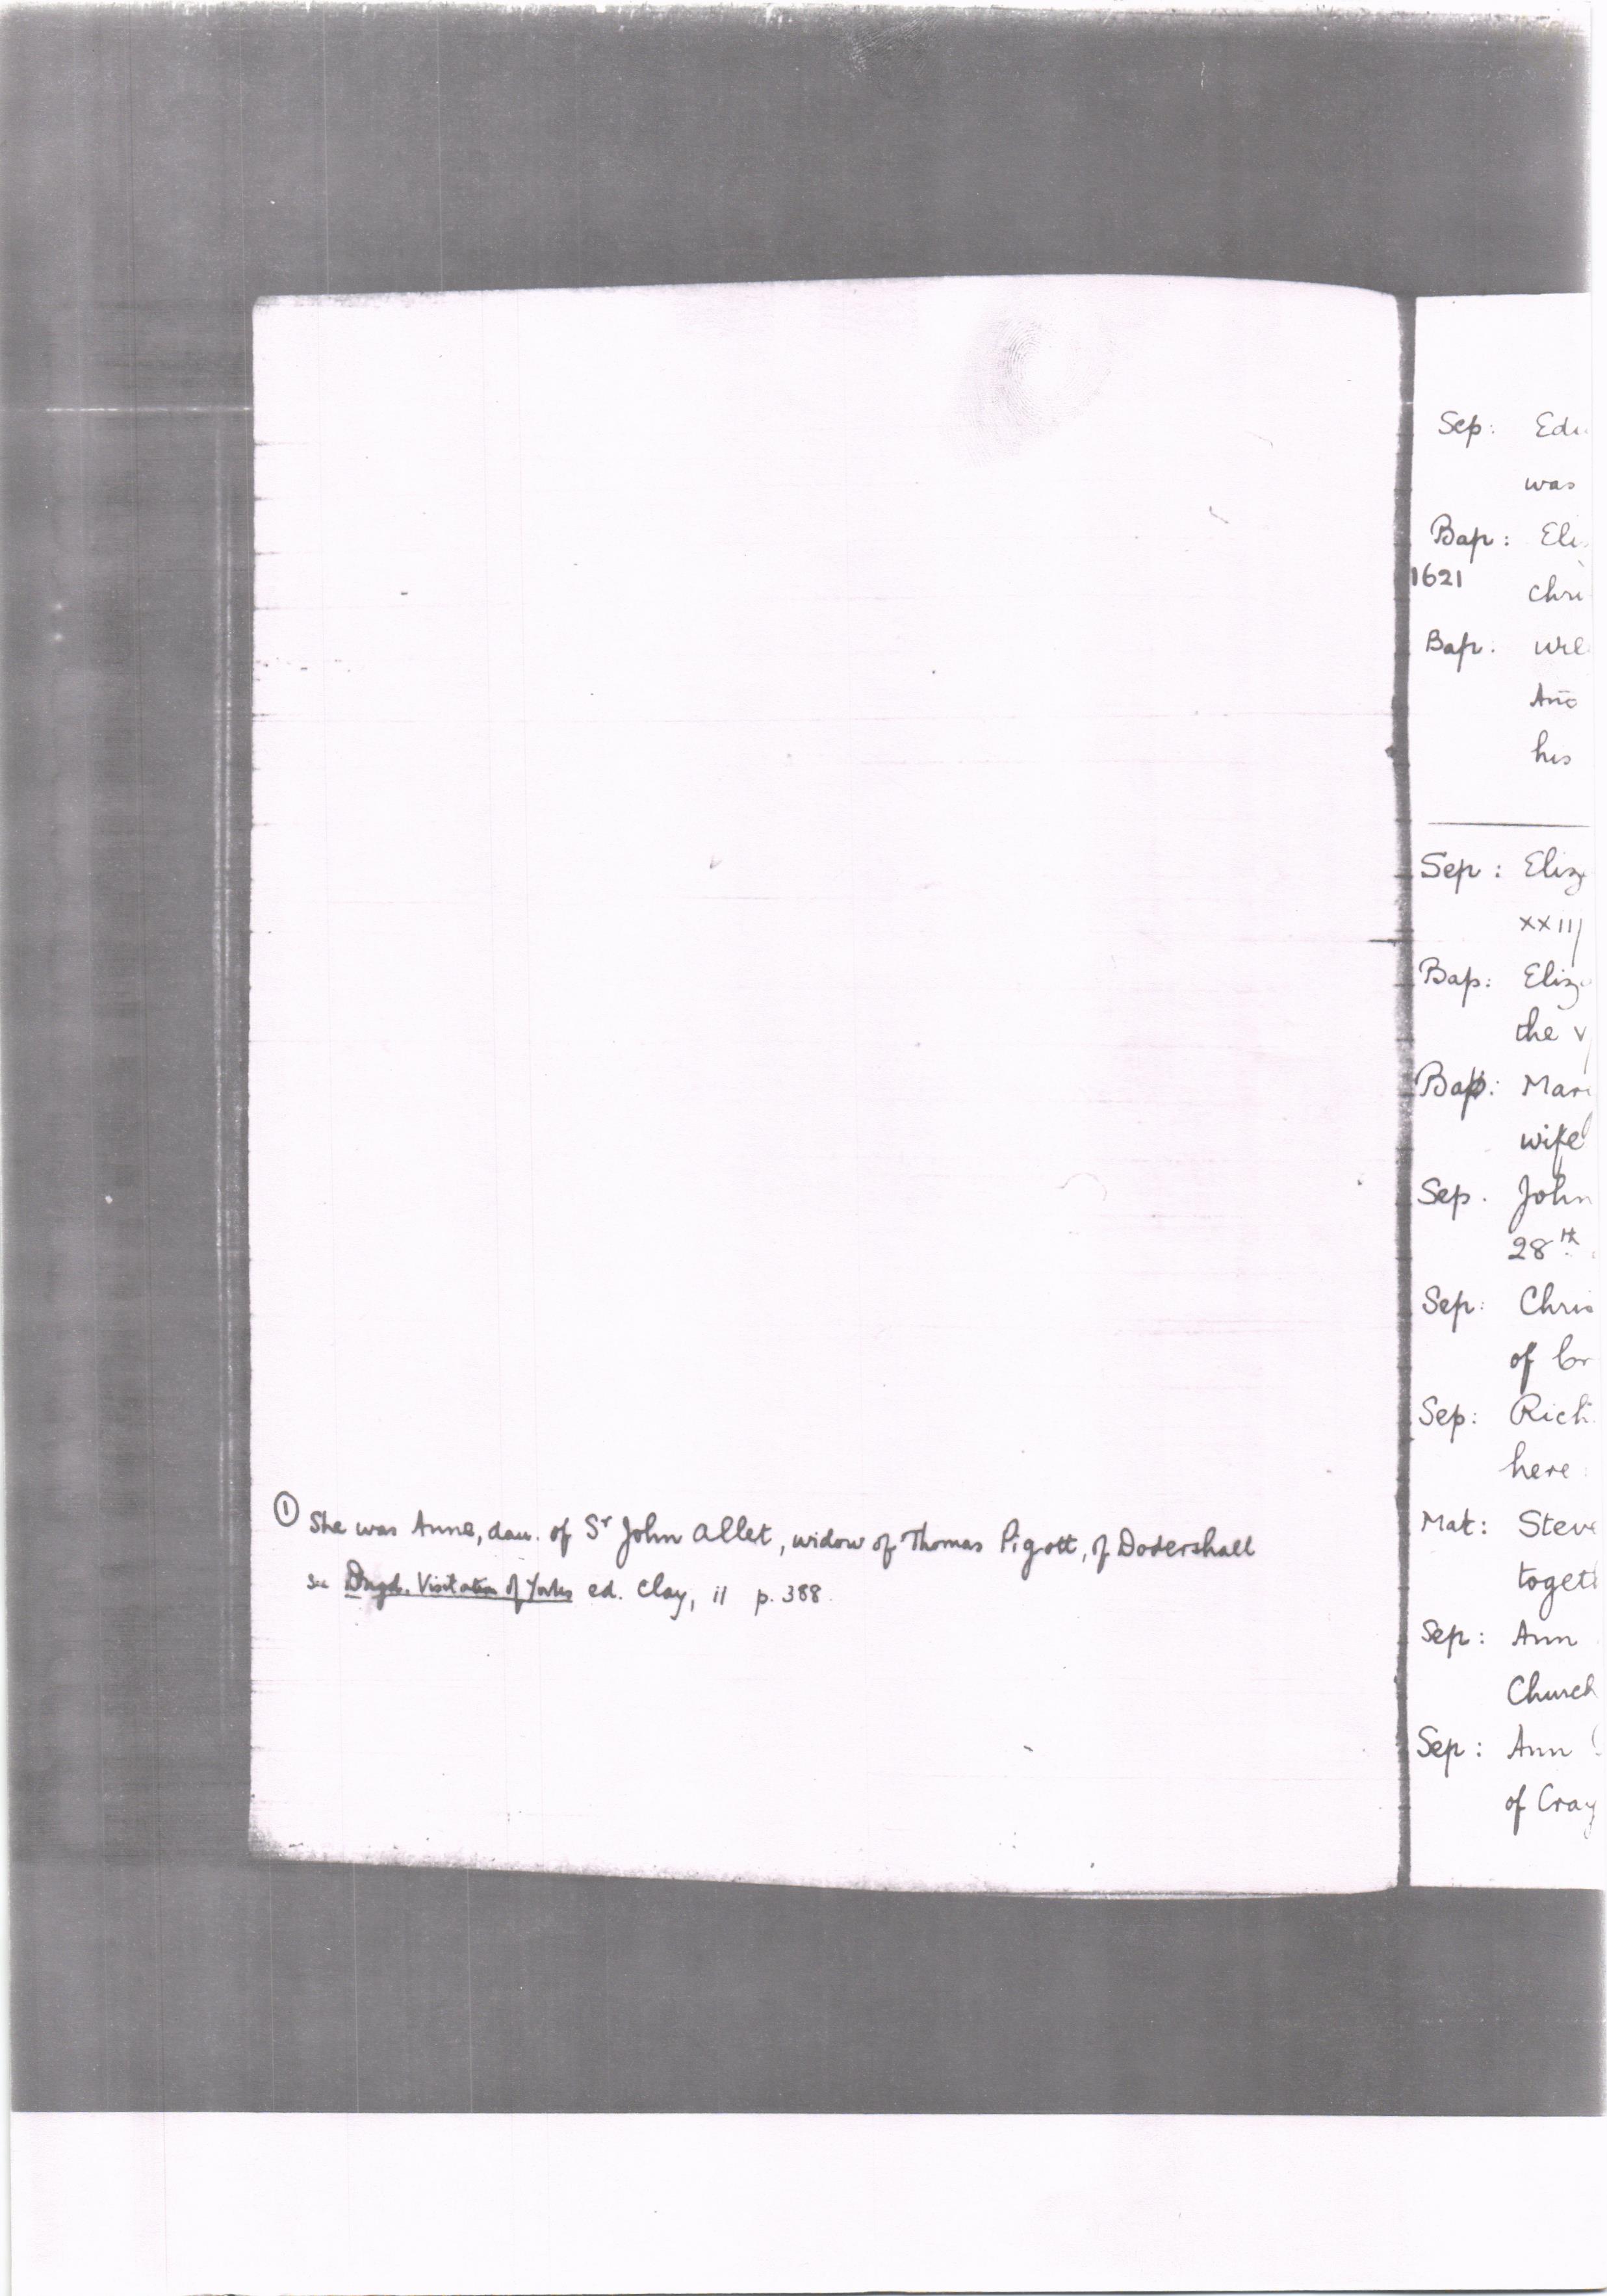 ① She was Anne, dau. of Sʳ John Allet, widow of Thomas Pigott, of Dodershall
see Dugd. Visitation of Yorks ed. Clay, ii p. 388.
Sep: Edw
was
Bap: Eli
1621
chri
Bap: Wil
Ano
his
Sep: Eliz
xxiij
Bap: Eliz
the v
Bap: Mari
wife
Sep. John
28th
Sep: Chris
of
Sep: Rich
here
Mat: Steve
toget
Sep: Ann
Church
Sep: Ann
of Cray